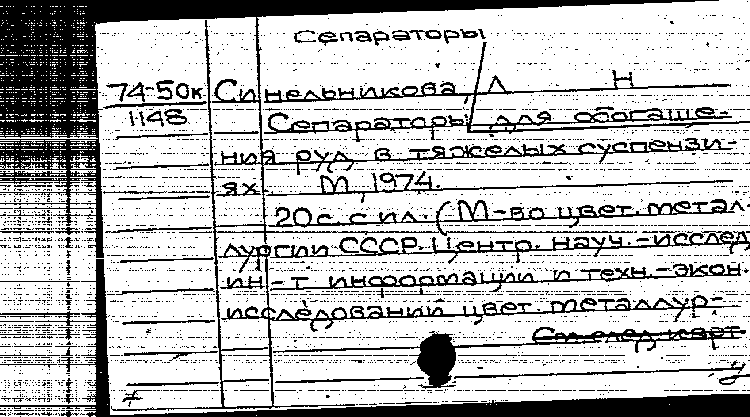 Сепараторы
74-50к Синельникова, Л Н
1148 Сепараторы для обогаще-
ния руд в тяжелых суспензи-
ях. М, 1974.
20с. с ил. (М-во цвет. метал-
лургии СССР. Центр. науч.-исслед
ин-т информации и техн.-экон.
исследований цвет. металлур-
См след карт